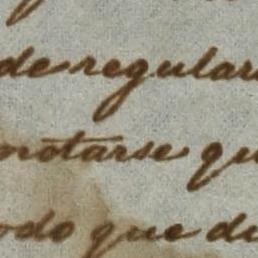 de regular
notarse qu
odo que di